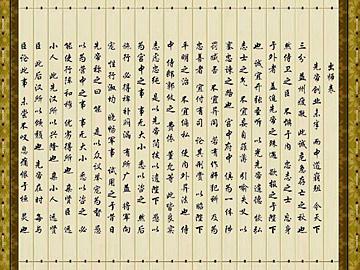 出师表
先帝创业未半 而中道崩殂 今天下
三分 益州疲敝 此诚危急存亡之秋也
然侍卫之臣 不懈于内 忠志之士 忘身
于外者 盖追先帝之殊遇 欲报之于陛下
也 诚宜开张圣听 以光先帝遗德 恢弘
志士之气 不宜妄自菲薄 引喻失义 以
塞忠谏之路也 宫中府中 俱为一体 陟
罚臧否 不宜异同 若有作奸犯科 及为
忠善者 宜付有司 论其刑赏 以昭陛下
平明之治 不宜偏私 使内外异法也 侍
中 侍郎郭攸之 费祎 董允等 此皆良实
志虑忠纯 是以先帝简拔以遗陛下 愚以
为宫中之事 事无大小 悉以咨之 然后
施行 必得裨补阙漏 有所广益 将军向
宠 性行淑均 晓畅军事 试用之于昔日
先帝称之曰能 是以众议举宠为督 愚
以为营中之事 事无大小 悉以咨之 必
能使行阵和穆 优劣得所也 亲贤臣 远
小人 此先汉所以兴隆也 亲小人 远贤
臣 此后汉所以倾颓也 先帝在时 每与
臣论此事 未尝不叹息痛恨于桓灵也